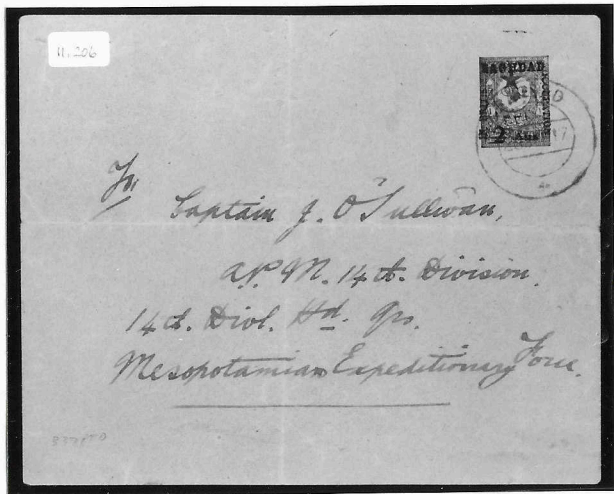 11.206
BAGHDAD
2 Ans
To
Captain J. O'Sullivan,
A.P.M. 14th. Division.
14th. Divl. Hd. Qrs.
Mesopotamian Expeditionary Force.